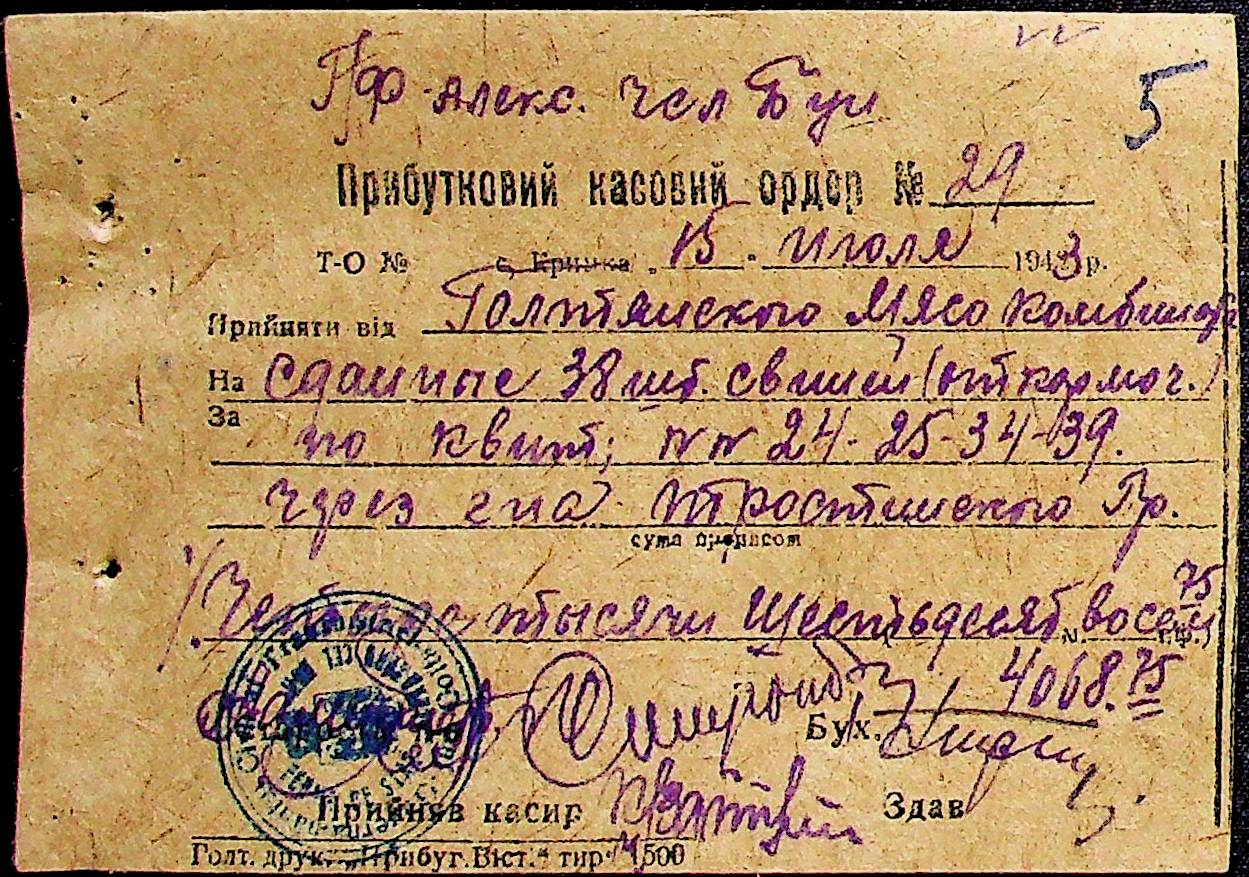 5
ПФ Алекс.
Прибутковий касовий ордер № 29
Т-О № с. Кринка „15„ июля 1943 р.
Прийняти від Голтянского Мясокомбината
На сданные 38 шт. свиней (откормоч.)
За по квит; №№ 24-25-34-39.
через Тростинского Гр.
сума прописом
Четыре тысячи Шестьдесят восемь 75
4068.75
Бух.
Прийняв касир Здав
Голт. друк. „Прибуг. Віст.“ тир 1500